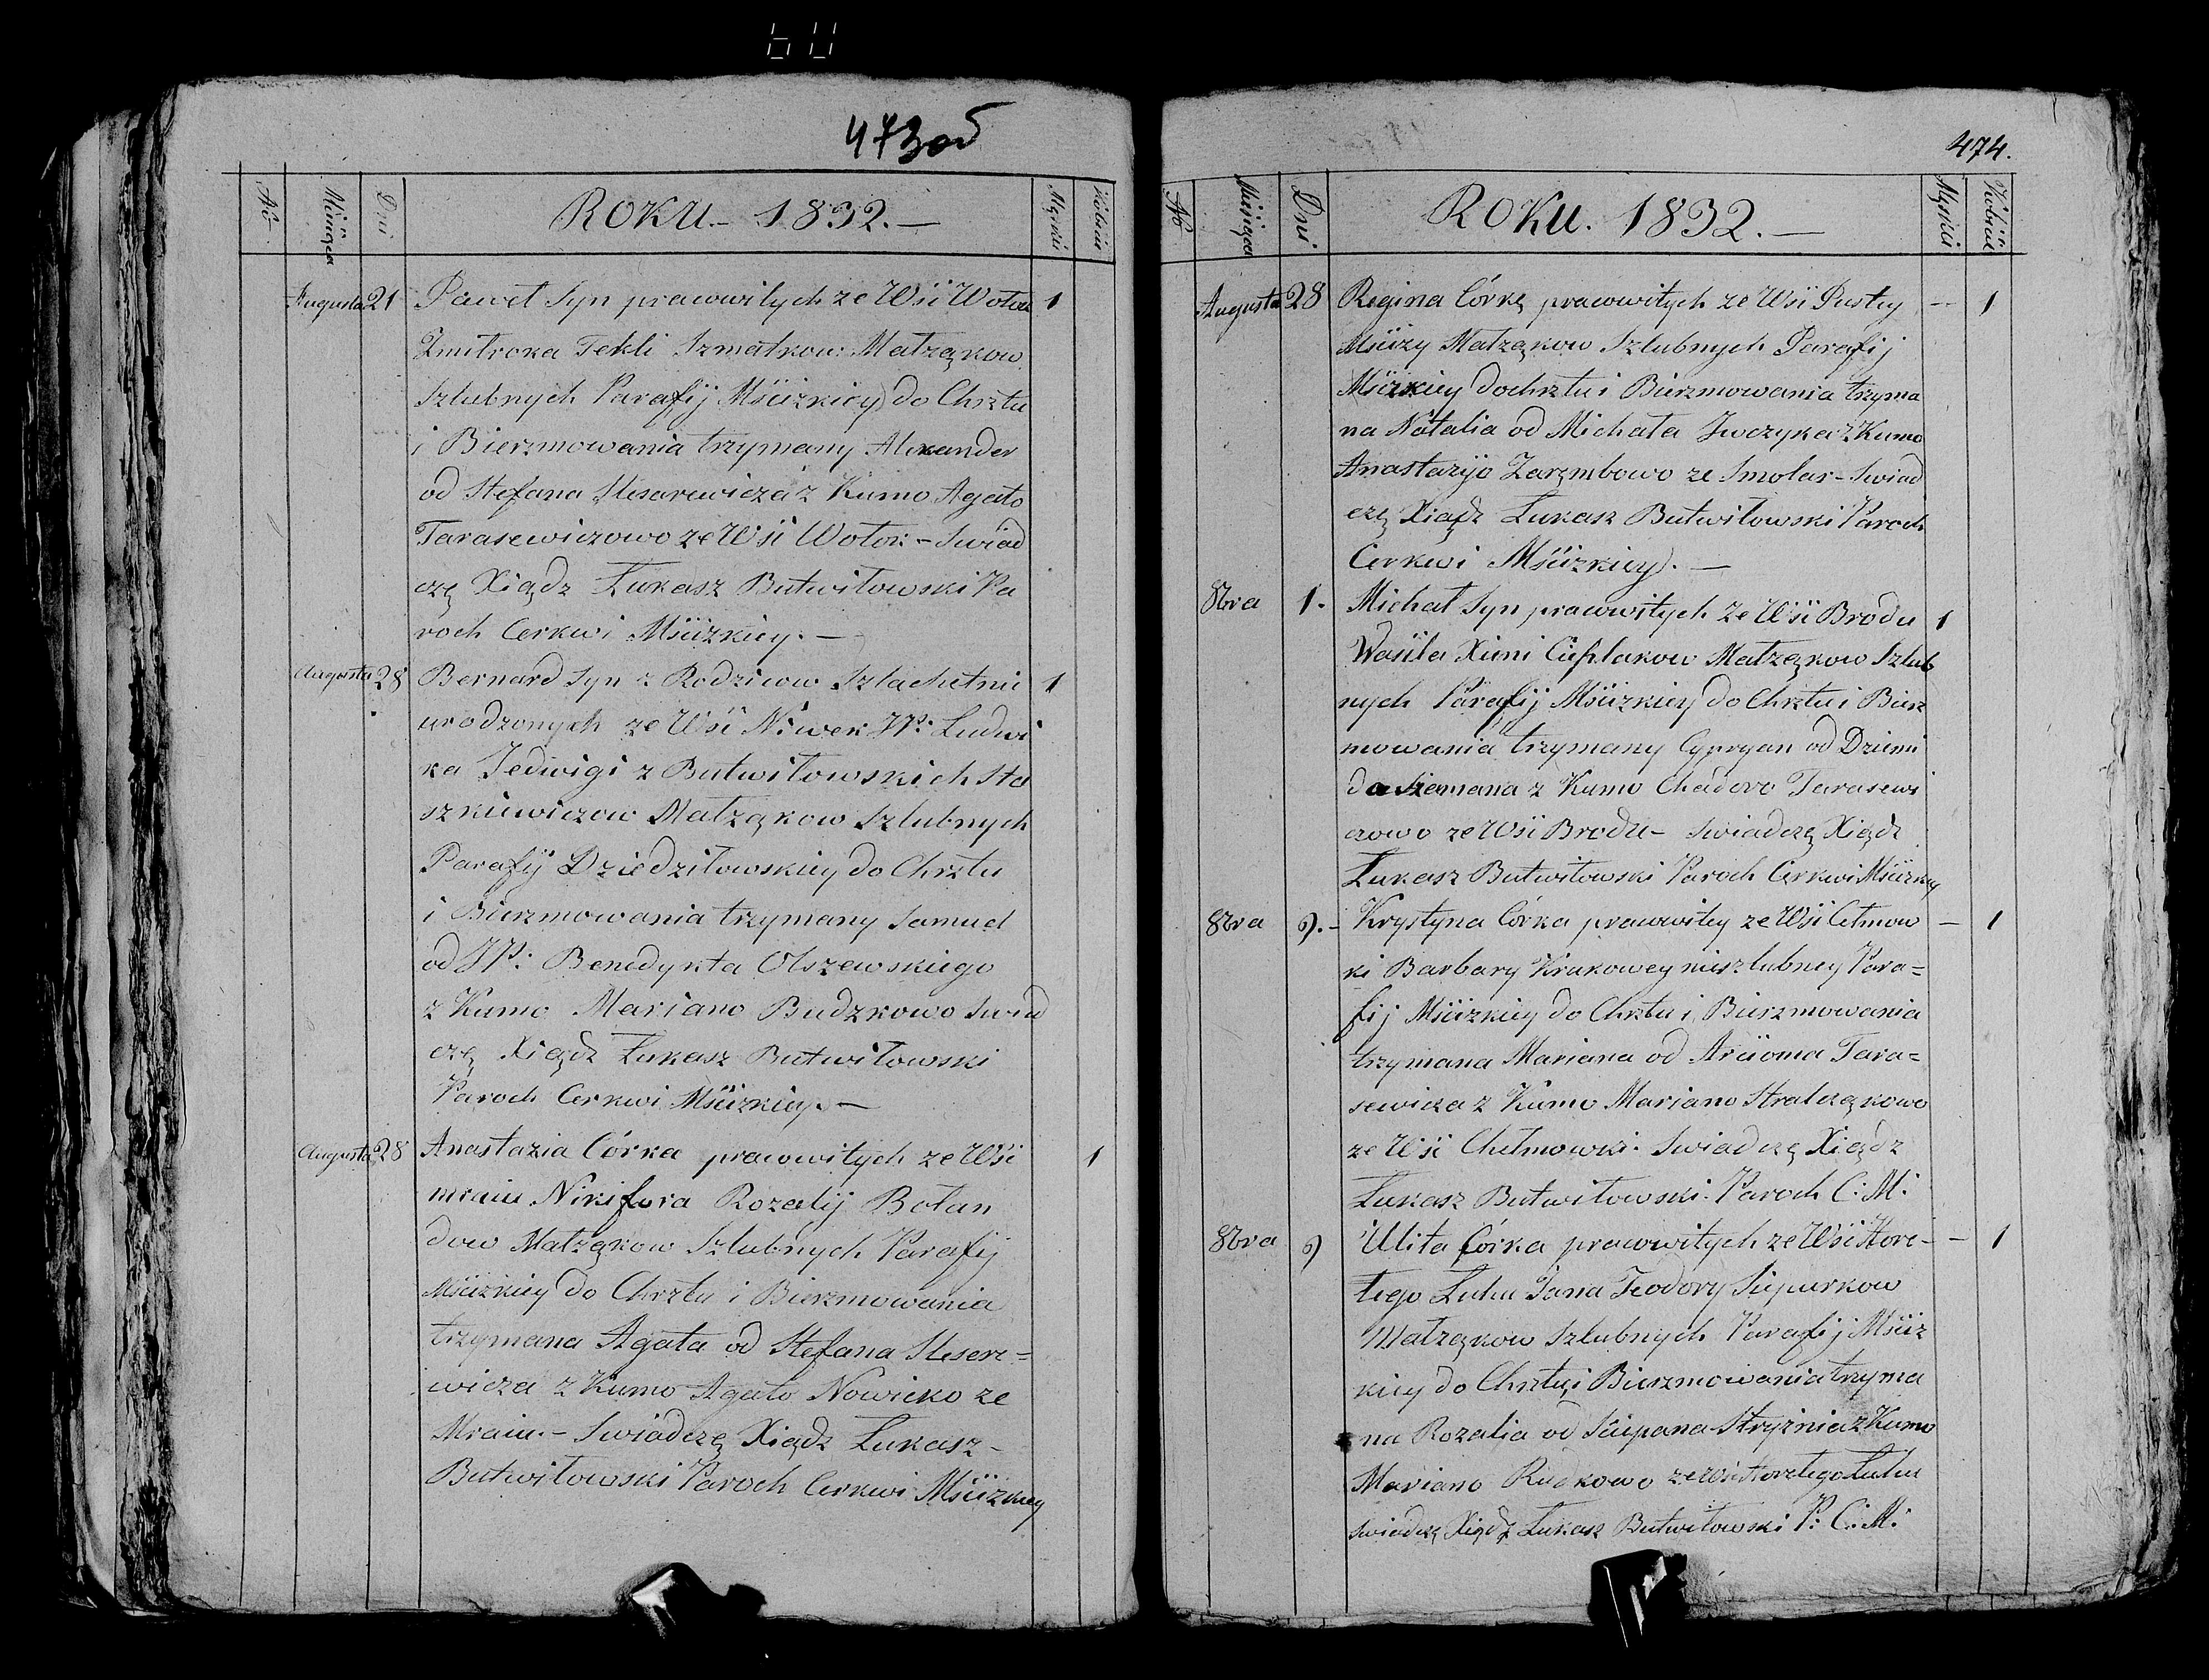 473 об
№ Miesiąca Dni ROKU.- 1832.— Męskii Kobieć
Augusta 21 Paweł Syn pracowitych ze Wsi Wołoк 1
Zmitroka Tekli Szmatkow: Małżąkow
Szlubnych Parafij Mścizkiey do Chrztu
i Bierzmowania trzymany Alexander
od Stefana Slesarewicza z Kumo Agato
Tarasewiczowo ze Wsi Wołok - Swiad
czę Xiądz Łukasz Butwiłowski Pa
roch Cerkwi Mścizkiey. —
Augusta 28 Bernard Syn z Rodzicow Szlachetnie 1
urodzonych ze Wsi Niwek JP: Ludwi
ka Jedwigi z Butwiłowskich Sta
szkiewiczow Małżąkow Szlubnych
Parafij Dziedziłowskiey do Chrztu
i Bierzmowania trzymany Samuel
od JP: Benedykta Olszewskiego
z Kumo Mariano Budzkowo Swiad
czę Xiądz Łukasz Butwiłowski
Paroch Cerkwi Mścizkiey. —
Augusta 28 Anastazia Córka pracowitych ze Wsi 1
Mraiu Nikifora Rozalij Bołan
dow Małżąkow Szlubnych Parafij
Mścizkiey do Chrztu i Bierzmowania
trzymana Agata od Stefana Slesere=
wicza z Kumo Agato Nowicko ze
Mraiu. - Swiadczę Xiądz Łukasz -
Butwiłowski Paroch Cerkwi Mścizkiey
474.
№ Miesiąca Dni ROKU. 1832. — Męskii Kobieć
Augusta 28 Regina Córkę pracowitych ze Wsi Pustey — 1
Mścizy Małżąkow Szlubnych Parafij
Mścizkiey do chrztu i Bierzmowania trzyma
na Natalia od Michała Jwczyka z Kumo
Anastazijo Zarembowo ze Smolar - Swiad
czę Xiądz Łukasz Butwiłowski Paroch
Cerkwi Mścizkiey. —
8bra 1. Michał Syn pracowitych ze Wsi Brodu 1
Wasila Xieni Cieślakow Małżąkow Szlub
nych Parafij Mścizkiey do Chrztu i Bierz
mowania trzymany Cypryan od Dziemi
da Siemana z Kumo Chadoro Tarasewi
czowo ze Wsi Brodu - Swiadczę Xiądz
Łukasz Butwiłowski Paroch Cerkwi Mścizkiey
8bra 9. - Krystyna Córka pracowitey ze Wsi Cełmow — 1
ki Barbary Krukowey nieszlubney Para=
fij Mścizkiey do Chrztu i Bierzmowania
trzymana Mariana od Arciioma Tara=
sewicza z Kumo Mariano Stralczękowo
ze Wsi Chełmowki. Swiadczę Xiądz
Łukasz Butwiłowski Paroch C: M:
8bra 9 Ulita Córka pracowitych ze Wsi Hore- — 1
łego Łuhu Jana Teodory Siepurkow
Małżąkow Szlubnych Parafij Mściz
kiey do Chrztu i Bierzmowania trzyma
na Rozalia od Sciepana Stryżnia z Kumo
Mariano Rudkowo ze Wsi Horełego Łuhu
swiadczę Xiądz Łukasz Butwiłowski P: C: M: